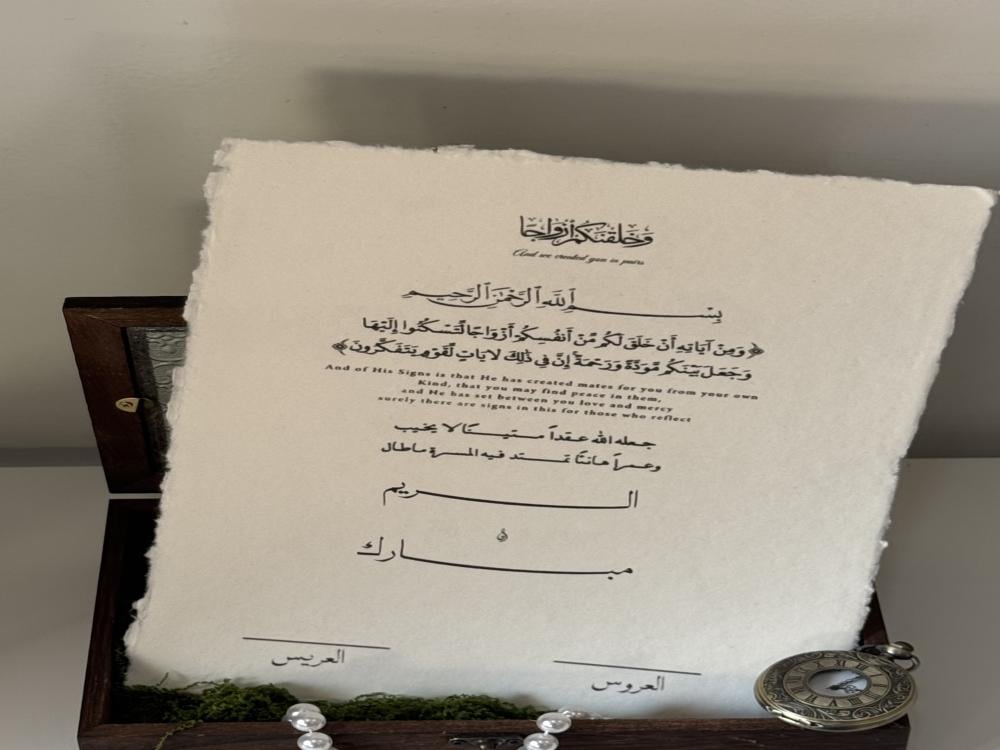 وَخَلَقْنَٰكُمْ أَزْوَٰجًا
And we created you in pairs
بِسْمِ ٱللَّهِ ٱلرَّحْمَٰنِ ٱلرَّحِيمِ
﴿وَمِنْ آيَاتِهِ أَنْ خَلَقَ لَكُم مِّنْ أَنفُسِكُمْ أَزْوَاجًا لِّتَسْكُنُوا إِلَيْهَا
وَجَعَلَ بَيْنَكُم مَّوَدَّةً وَرَحْمَةً إِنَّ فِي ذَٰلِكَ لَآيَاتٍ لِّقَوْمٍ يَتَفَكَّرُونَ﴾
And of His Signs is that He has created mates for you from your own
Kind, that you may find peace in them,
and He has set between you love and mercy
surely there are signs in this for those who reflect
جعله الله عقداً متيناً لا يخيب
وعمراً هانئاً تمتد فيه المسرة ماطال
الريم
و
مبارك
العريس
العروس